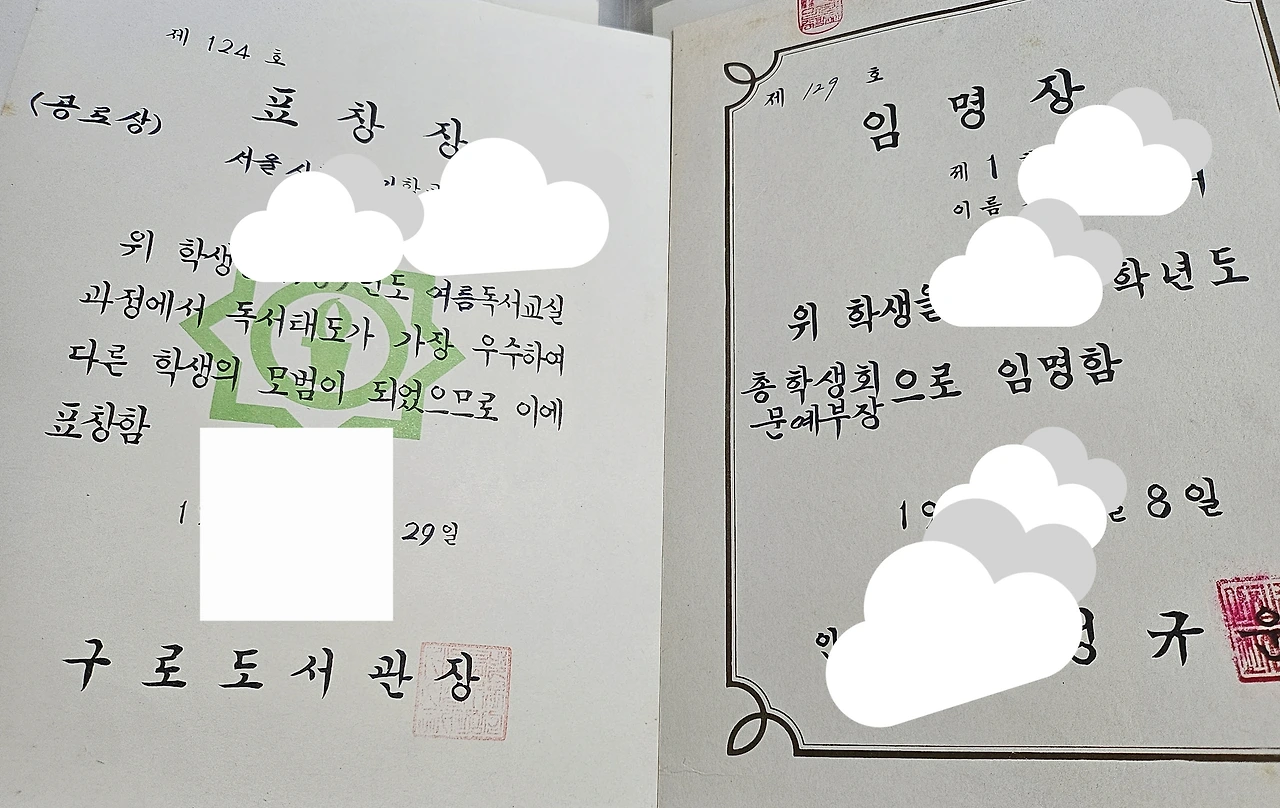 제 124 호
(공로상)
표 창 장
서울
위 학생
년도 여름독서교실
과정에서 독서태도가 가장 우수하여
다른 학생의 모범이 되었으므로 이에
표창함
1
29일
구 로 도 서 관 장
제 129 호
임 명 장
제 1
이름
위 학생을
학년도
총학생회 으로 임명함
문예부장
19
8일
규